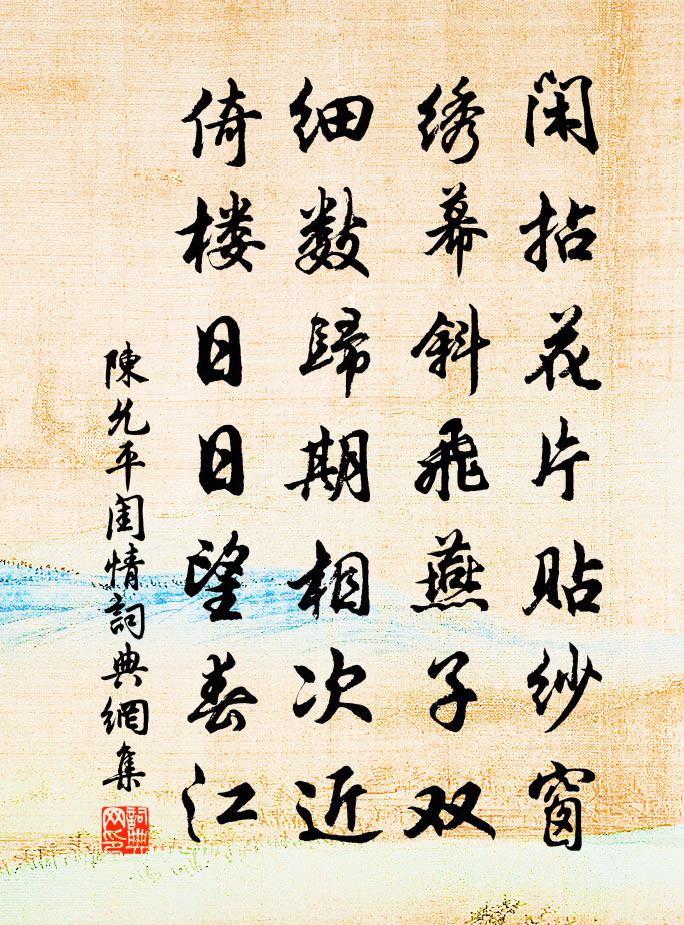 闲拈花片贴纱窗
绣幕斜飞燕子双
细数歸期相次近
倚楼日日望春江
陳允平閨情詞典網集
詞典网印